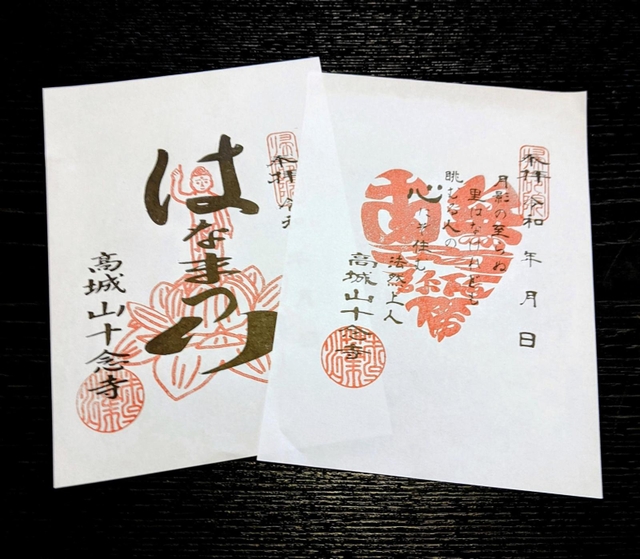 奉拝
はなまつり
高城山十念寺
奉拝 令和 年 月 日
月影の至らぬ
里はなけれども
眺むる人の
心にぞ住む
法然上人
高城山十念寺